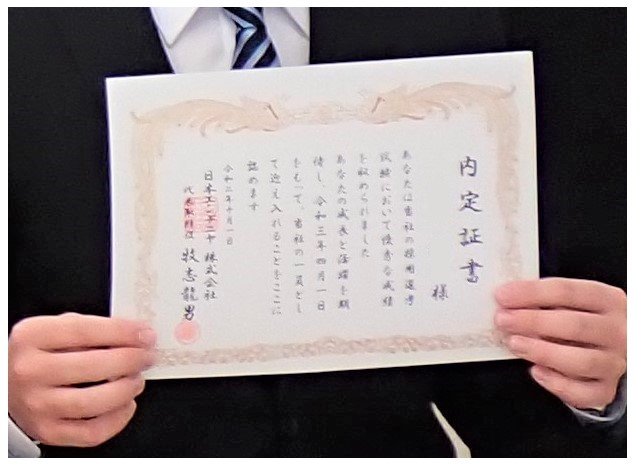 内定証書
様
あなたは当社の採用選考
試験において優秀な成績
を収められました
あなたの成長と活躍を期
待し、令和三年四月一日
をもって、当社の一員とし
て迎え入れることをここに
認めます
令和二年十月一日
日本 株式会社
代表取締役 牧志龍男